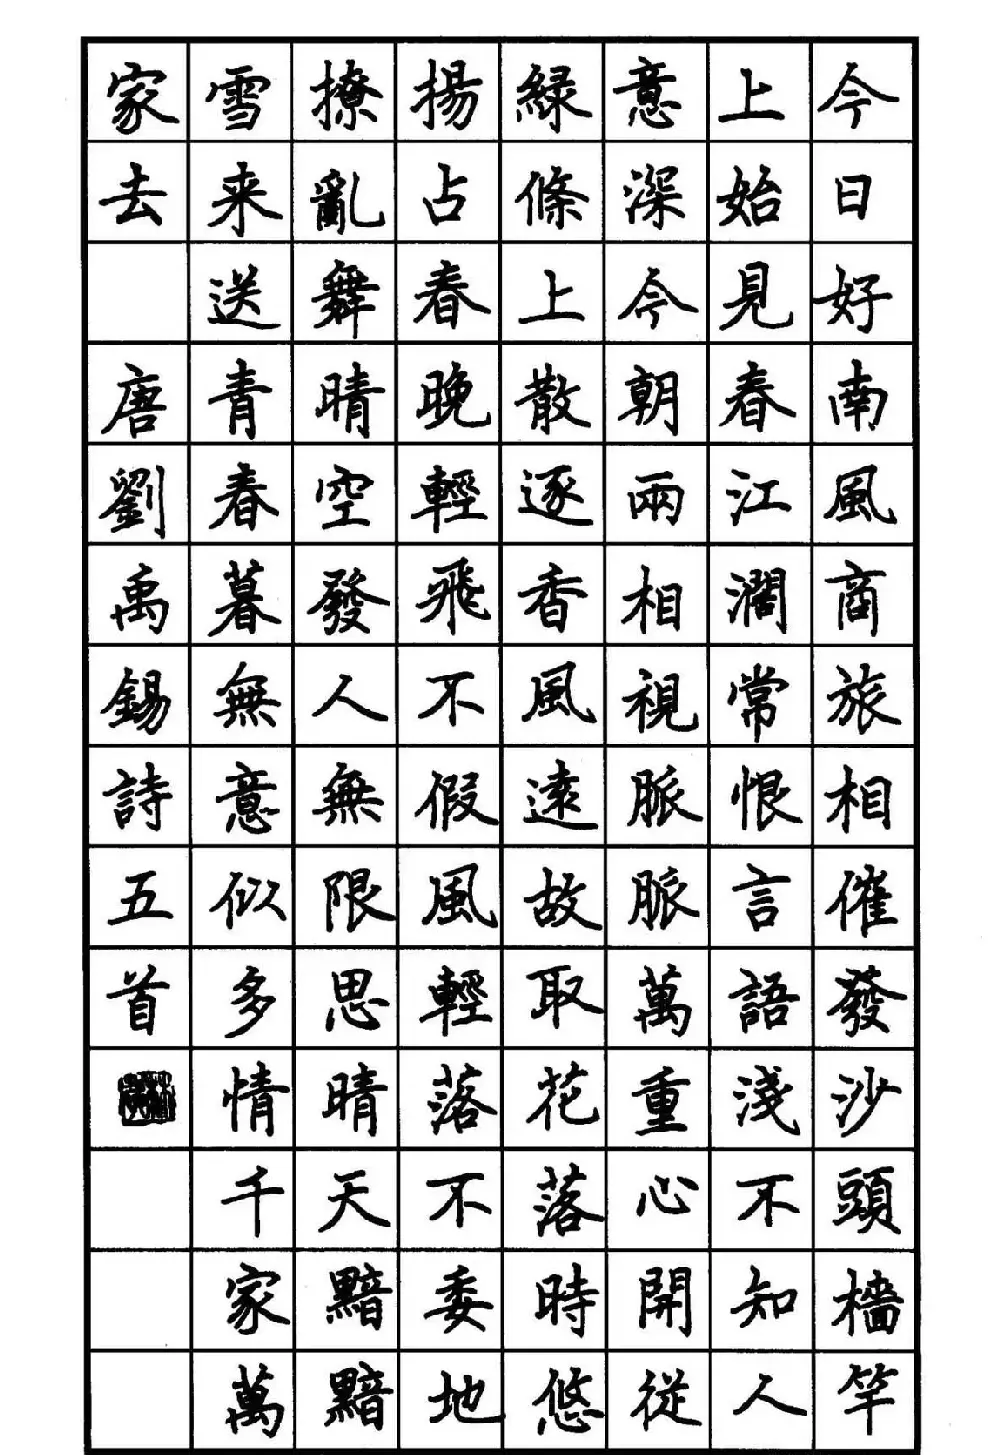 今日好南風商旅相催發沙頭檣竿
上始見春江濶常恨言語淺不知人
意深今朝兩相視脈脈萬重心開從
綠條上散逐香風遠故取花落時悠
揚占春晚輕飛不假風輕落不委地
撩亂舞晴空發人無限思晴天黯黯
雪来送青春暮無意似多情千家萬
家去唐劉禹錫詩五首